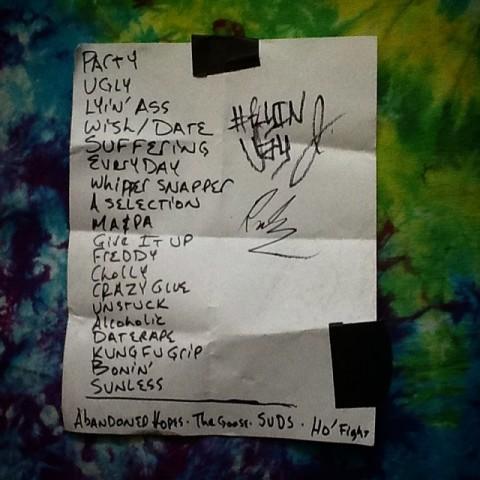 PARTY
UGLY
LYIN' ASS
WISH/DATE
SUFFERING
EVERYDAY
WHIPPER SNAPPER
A SELECTION
MA&PA
GIVE IT UP
FREDDY
CHOLLY
CRAZY GLUE
UNSTUCK
Alcoholic
DATERAPE
KUNG FU GRIP
BONIN'
SUNLESS
ABANDONED HOPES · THE GOOSE · SUDS · HO' FIGHT